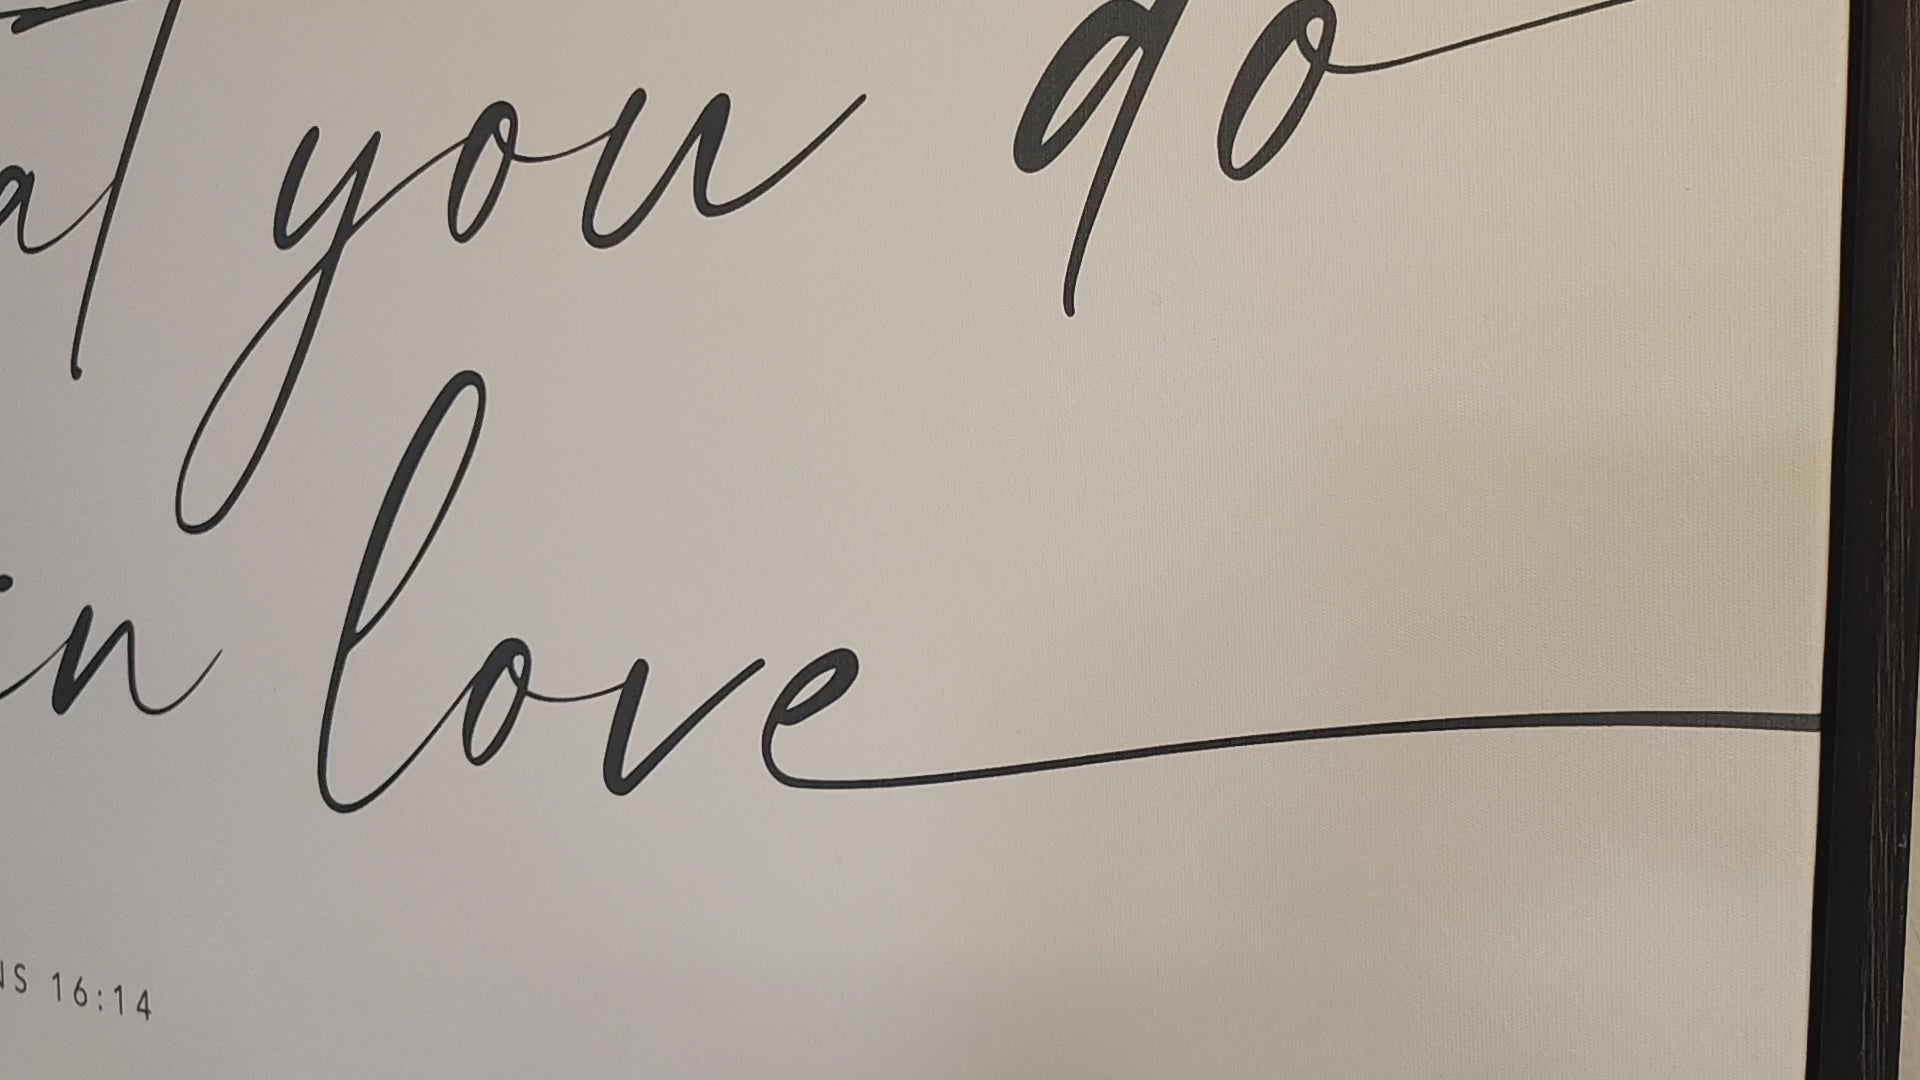 at you do
in love
NS 16:14